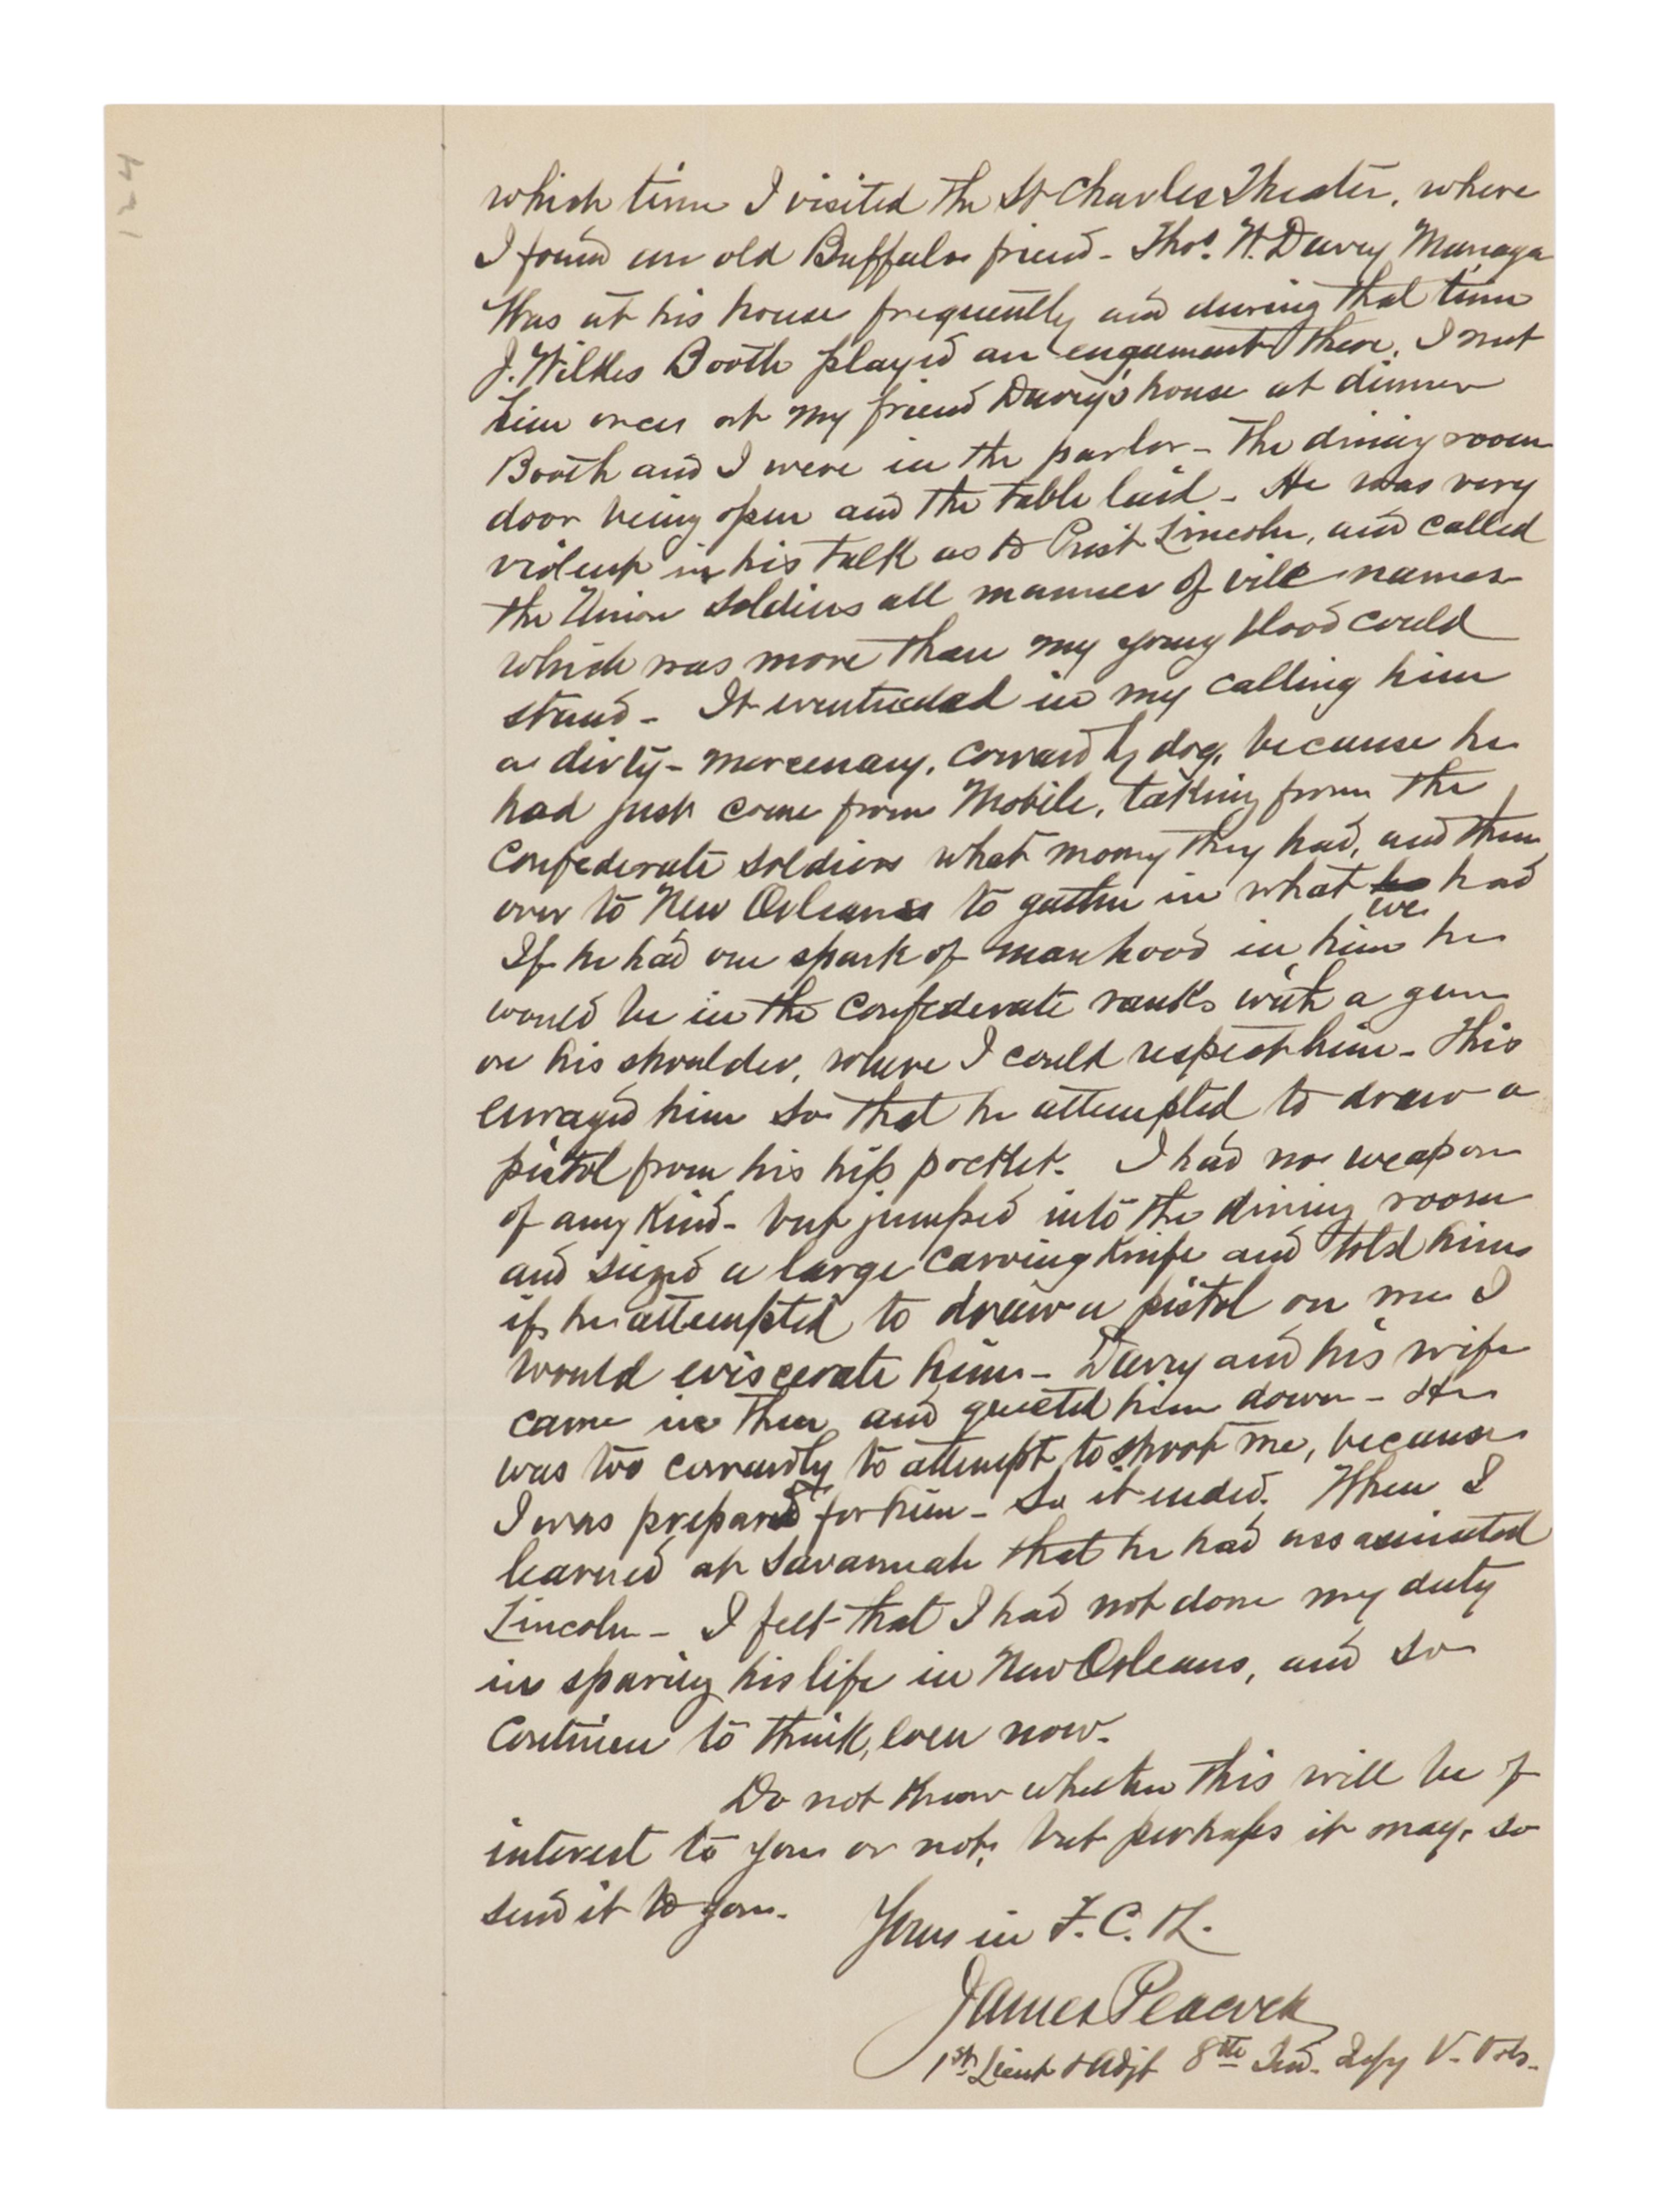 which time I visited the St Charles Theater, where
I found an old Buffalo friend - Thos. W. Davey Manager
Was at his house frequently and during that time
J. Wilkes Booth played an engament there. I met
him once at my friend Davey's house at dinner
Booth and I were in the parlor - the dining room
door being open and the table laid - He was very
violent in his talk as to Prest Lincoln, and called
the Union Soldiers all manner of vile names
which was more than my young blood could
stand - It eventuated in my calling him
a dirty - mercenary, cowardly dog, because he
had just come from Mobile, taking from the
Confederate soldiers what money they had, and then
over to New Orleans to gather in what we had
If he had one spark of manhood in him he
would be in the Confederate ranks with a gun
on his shoulder, where I could respect him - This
enraged him so that he attempted to draw a
pistol from his hip pocket. I had no weapon
of any kind - but jumped into the dining room
and siezed a large carving knife and told him
if he attempted to draw a pistol on me I
would eviscerate him - Davey and his wife
came in then and quieted him down - He
was too cowardly to attempt to shoot me, because
I was prepared for him - So it ended. When I
learned at Savannah that he had assasinated
Lincoln - I felt that I had not done my duty
in sparing his life in New Orleans, and so
continue to think, even now.
Do not know whether this will be of
interest to you or not, but perhaps it may, so
send it to you.
Yours in F. C. & L.
James Peacock
1st Lieut & Adjt 8th Ind. Infy V. Vols.